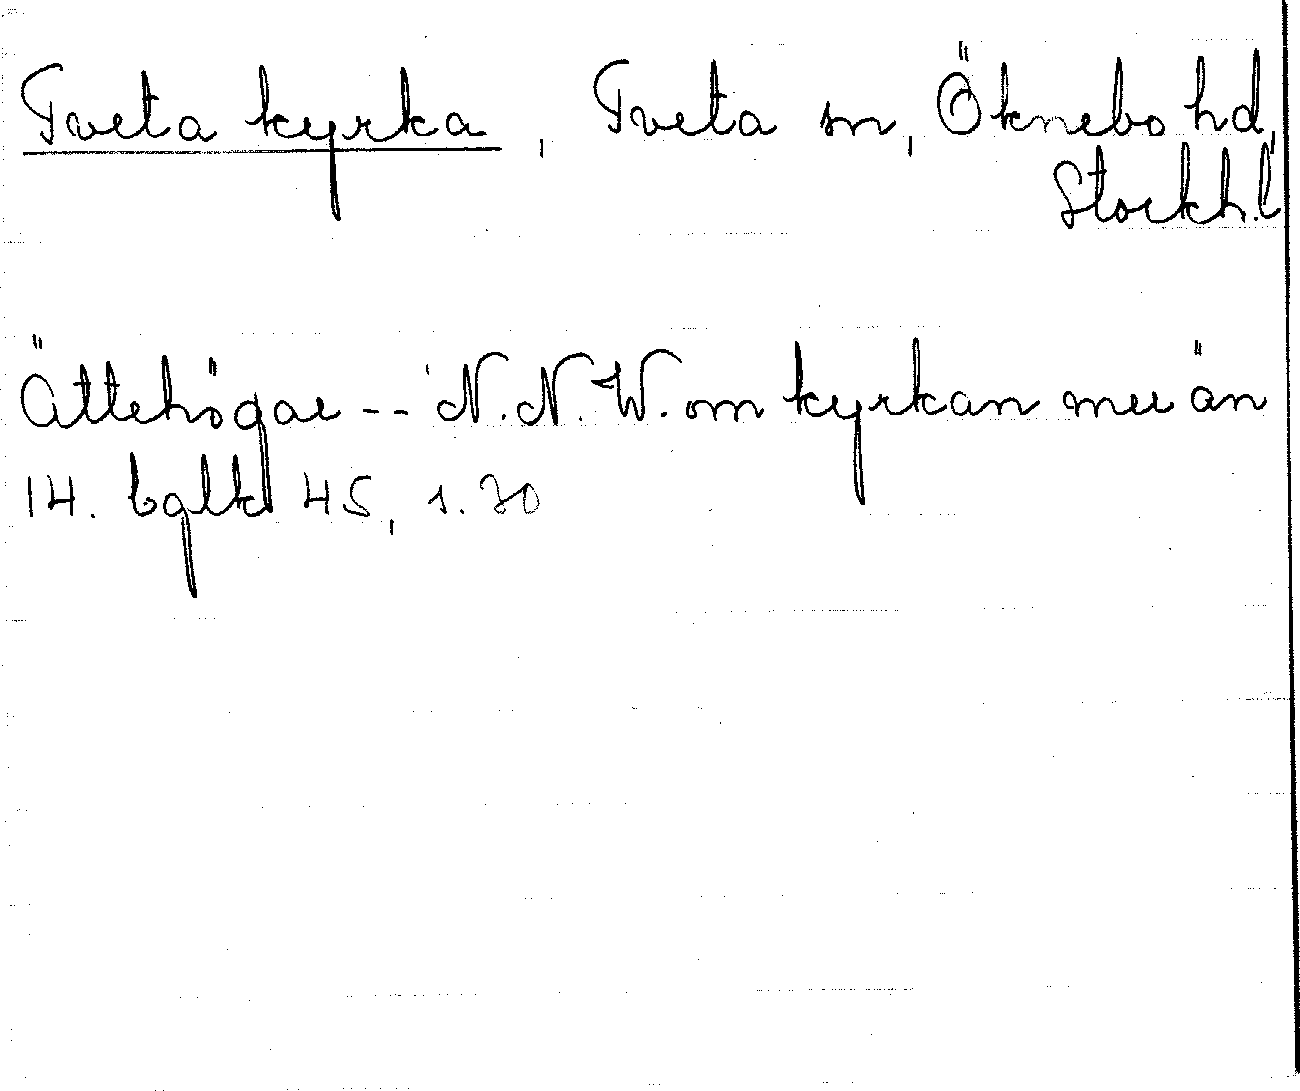 Tveta kyrka, Tveta sn, Öknebo hd,
Stockh.l
Ättehögar -- N.N.W. om kyrkan mer än
14. bglk 45, s. 30